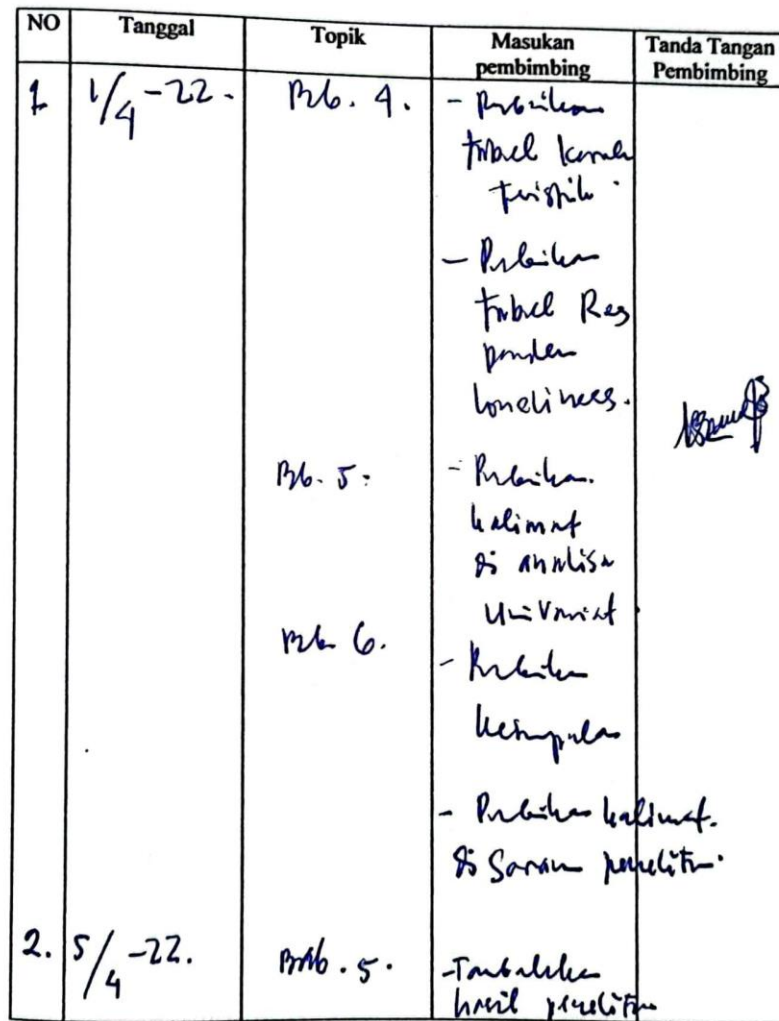 NO Tanggal Topik Masukan pembimbing Tanda Tangan Pembimbing
1 1/4-22. Bab. 4. - Perbaikan
tabel karak
teristik.
- Perbaikan
tabel Res
ponden
loneliness.
Bab. 5. - Perbaikan.
kalimat
di analisa
Univariat
Bab 6. - Perbaikan
kesimpulan
- Perbaikan kalimat.
di Saran penelitian.
2. 5/4-22. Bab. 5. - Tambahkan
hasil penelitian